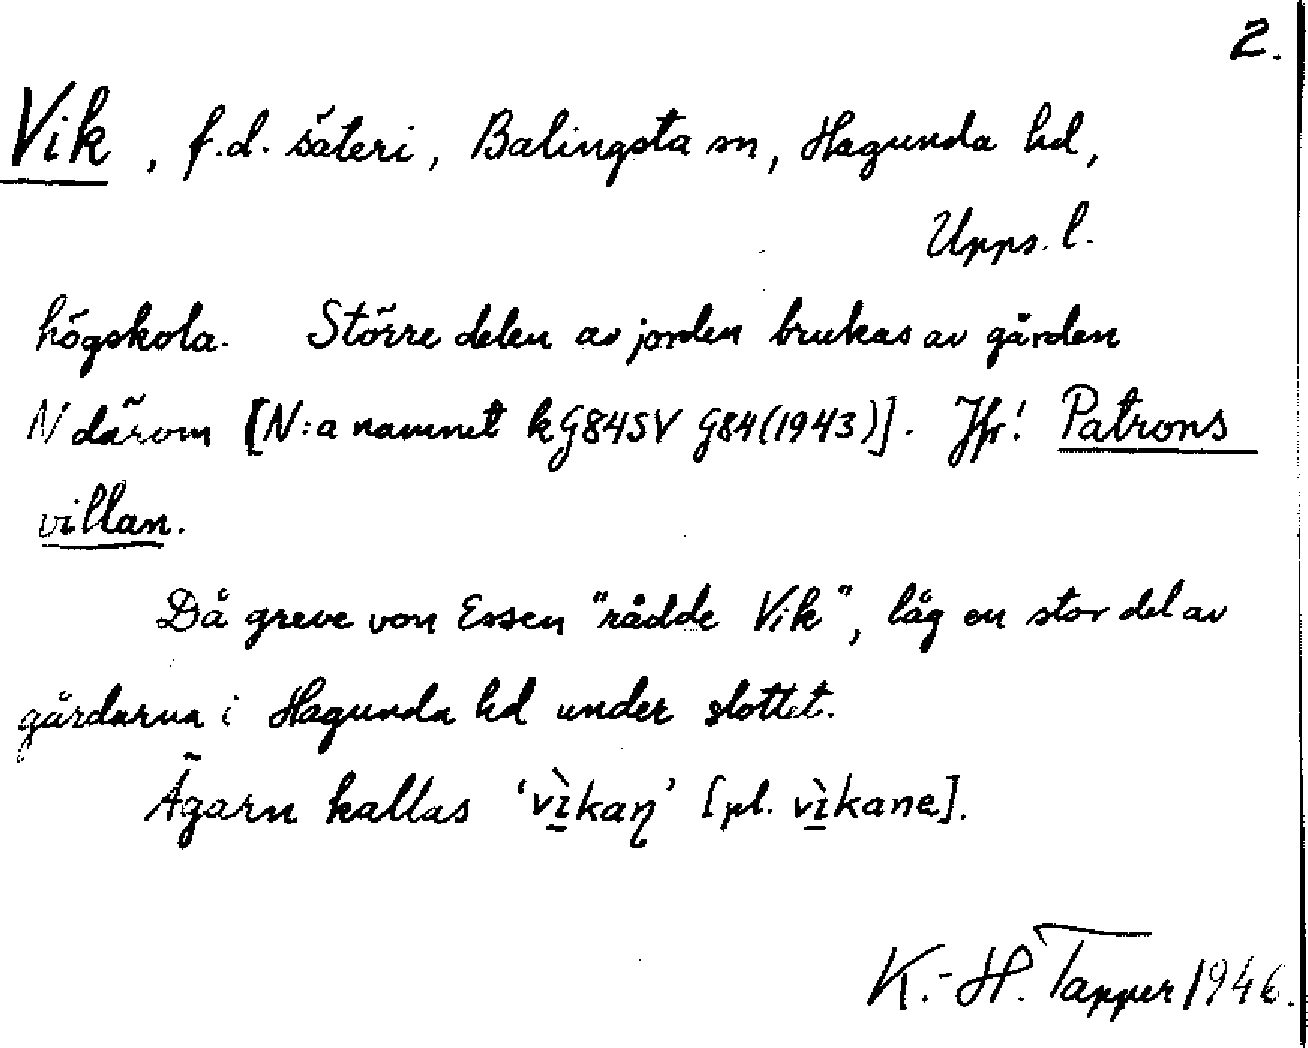 2.
Vik, f.d. säteri, Balingsta sn, Hagunda hd,
Upps. l.
högskola. Större delen av jorden brukas av gården
N därom [N:a namnet kG84SV G84(1943)]. Jfr! Patrons
villan.
Då greve von Essen "rådde Vik", låg en stor del av
gårdarna i Hagunda hd under slottet.
Ägarn kallas 'vì̠kaɳ' [pl. vì̠kane].
K.-H. Tapper 1946.